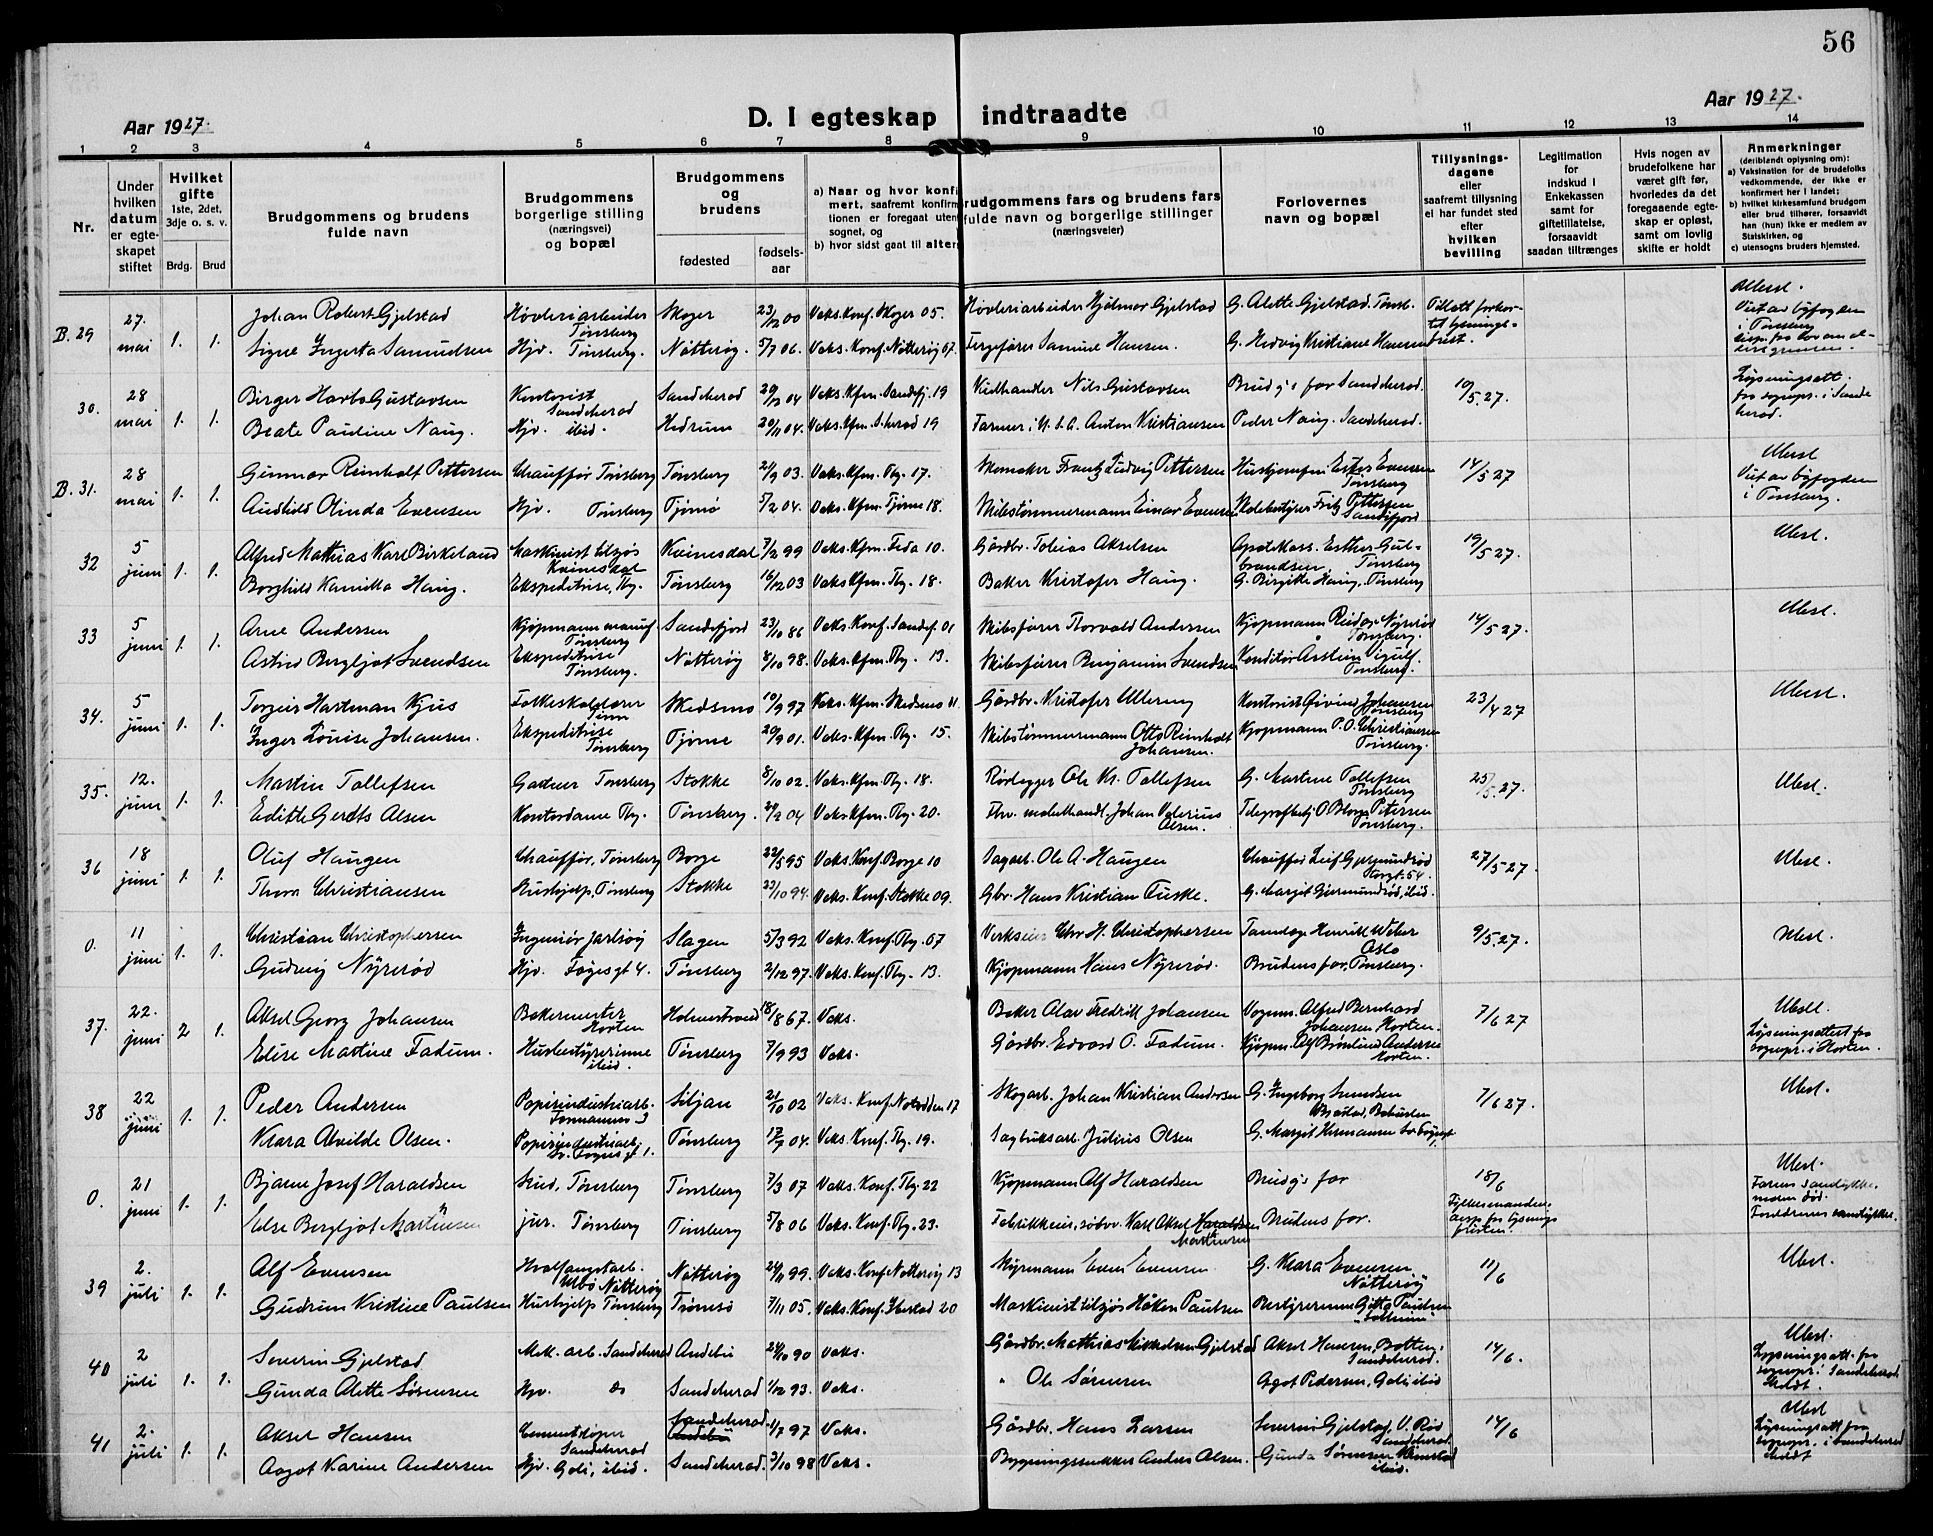 56
Aar 1927.
D. I egteskap indtraadte
Aar 1927.
1 2 3 4 5 6 7 8 9 10 11 12 13 14
Nr.
Under hvilken datum er egteskapet stiftet
Hvilket gifte
1ste, 2det, 3dje o. s. v.
Brdg. Brud
Brudgommens og brudens fulde navn
Brudgommens borgerlige stilling (næringsvei) og bopæl
Brudgommens og brudens
fødested
fødselsaar
a) Naar og hvor konfirmert, saafremt konfirmationen er foregaat utensognet, og
b) hvor sidst gaat til alters
Brudgommens fars og brudens fars fulde navn og borgerlige stillinger (næringsveier)
Forlovernes navn og bopæl
Tillysningsdagene eller saafremt tillysning ei har fundet sted efter hvilken bevilling
Legitimation for indskud i Enkekassen samt for giftetillatelse, forsaavidt saadan tiltrænges
Hvis nogen av brudefolkene har været gift før, hvorledes da det foregaaende egteskap er opløst, samt om lovlig skifte er holdt
Anmerkninger
(deriblandt oplysning om):
a) Vaksination for de brudefolks vedkommende, der ikke er konfirmert her i landet;
b) hvilket kirkesamfund brudgom eller brud tilhører, forsaavidt han (hun) ikke er medlem av Statskirken, og
c) utensogns bruders hjemsted.
B. 29 27. mai 1. 1. Johan Robert Gjelstad Høvleriarbeider Tønsberg Skoger 23/12 00 Vaks. Konf. Skoger 05. Høvleriarbeider Hjalmar Gjelstad G. Alette Gjelstad. Tønsb. Tillatt forkortet lysningsfrist. Ubesl. Viet av byfogden i Tønsberg
Signe Ingerta Samuelsen Hjv. Tønsberg. Nøtterøy. 5/7 06. Vaks. Konf. Nøtterøy 07. Fergefører Samuel Hansen. G. Hedvig Kristiane Hansen
30. 28 mai 1. 1. Birger Gustavsen Kontorist Sandeherad Sandeherad 29/12 04 Vaks. Kfm. Sandefj. 19 Vedhandler Nils Gustavsen Brudg's far Sandeherad. 10/5.27. Lysningsatt. fra sognepr. i Sandeherad.
Beate Pauline Naug. Hjv. ibid. Hedrum 20/11 04. Vaks. Kfm. S.herad 19 Farmer i U.S.A. Anton Kristiansen Peder Naug. Sandeherad.
B. 31. 28 mai 1. 1. Gunnar Reinholt Pettersen Chauffør Tønsberg Tønsberg 21/9 03. Vaks. Kfm. Tbg. 17. Skomaker Frantz Ludvig Pettersen Hushjemfru Ester Evensen Tønsberg 14/5 27 Ubesl Viet av byfogden i Tønsberg.
Audhild Olinda Evensen Hjv. Tønsberg Tjømø 5/2 04. Vaks. Kfm. Tjøme 18. Skibstømmermann Einar Evensen Skolebestyrer Fritz Pettersen Sandefjord
32 5 juni 1. 1. Alfred Mathias Karl Birkeland Maskinist tilsjøs Kvinesdal Kvinesdal 7/2 99 Vaks. Kfm. Feda 10. Gårdbr. Tobias Akselsen Apotekass. Esther Gulbrandsen, Tønsberg 19/5 27. Ubesl.
Borghild Kamilla Haug. Ekspeditrise, Tbg. Tønsberg 16/12 03 Vaks Kfm. Tbg. 18. Baker Kristofer Haug. G. Birgitte Haug, Tønsberg
33 5 juni 1. 1. Arne Andersen Kjøpmann manuf. Tønsberg Sandefjord 23/10 86 Vaks. Konf. Sandef. 01 Skibsfører Thorvald Andersen Kjøpmann Reidar Nyrerød Tønsberg. 14/5 27. Ubesl.
Astrid Bergljot Svendsen Ekspeditrise Tønsberg. Nøtterøy 8/10 98. Vaks. Kfm. Tbg. 13. Skibsfører Benjamin Svendsen Konditor Tønsberg.
34. 5 juni 1. 1. Torgeir Hartman Kjus Folkeskolelærer Skedsmo 10/9 97 Vaks. Kfm. Skedsmo 11. Gårdbr. Kristofer Ullereng Kontorist Eivind Johansen Tønsberg 23/4 27 Ubesl.
Inger Louise Johansen. Ekspeditrise Tønsberg Tjøme 20/9 01. Vaks. Kfm. Tbg. 15. Skibstømmermann Otto Reinholt Johansen. Kjøpmann P.O. Christiansen Tønsberg.
35. 12. juni 1. 1. Martin Tollefsen Gartner Tønsberg Stokke 8/10 02. Vaks. Kfm. Tbg. 18. Rørlegger Ole Kr. Tollefsen G. Martine Tollefsen Tønsberg 25/5.27. Ubesl.
Edith Gerdts Olsen Kontordame Tbg. Tønsberg. 24/2 04 Vaks Kfm. Tbg. 20. Johan Valerius Olsen. Telegrafbetj. Petersen Tønsberg.
36 18 juni 1. 1. Oluf Haugen Chauffør, Tønsberg Borge 22/5 95 Vaks. Konf. Borge 10 Sagarb. Ole A. Haugen Chauffør Leif Gjermundrød Storgt. 54. 27/5 27 Ubesl.
Thora Christiansen Hushjelp, Tønsberg Stokke 23/10 94. Vaks. Konf. Stokke 09. Gbr. Hans Kristian Fuske. G. Margit Gjermundrød, ibid.
0. 11 juni 1. 1. Christian Christophersen Ingeniør Jarlsøy Slagen 5/3 92 Vaks. Konf. Tbg. 07 Verkseier Chr. H. Christophersen Tannlæge Henrik Weber Oslo 9/5.27. Ubesl.
Gudveig Nyrerød Hjv. Føgesgt 4. Tønsberg 2/12 97. Vaks. Konf. Tbg. 13. Kjøpmann Hans Nyrerød. Brudens far, Tønsberg.
37. 22. juni 2 1. Aksel Georg Johansen Bakermester Horten Holmestrand 18/8 67. Vaks. Baker Olav Fredrik Johansen Vognm. Alfred Bernhard Johansen Horten. 7/6 27 Ubesl. Lysningsattest fra sognepr. i Horten.
Edise Martine Fadum. Husbestyrerinne ibid. Tønsberg 7/9 93 Vaks. Gårdbr. Edvard O. Fadum. Kjøpm. Alf Brønlund Andersen Horten.
38 22 juni 1. 1. Peder Andersen Papirindustriarb. Siljan 21/10 02 Vaks. Konf. Notodden 17 Skogarb. Johan Kristian Andersen G. Ingeborg 7/6 27. Ubesl.
Klara Alvilde Olsen. Papirindustriarb. 1. Tønsberg 17/9 04. Vaks. Konf. Tbg. 19. Sagbruksarb. Julius Olsen G. Margit Hermansen
0. 21 juni 1. 1. Bjarne Josef Haraldsen Stud. Tønsberg Tønsberg 7/3 07 Vaks. Konf. Tbg. 22 Kjøpmann Alf Haraldsen Brudg's far 18/6 Fylkesmandens disp. fra lysningsfristen. Ubesl. Farens samtykke. moren død. Foreldrenes samtykke.
Else Bergljot Martinsen jur. Tønsberg Tønsberg 5/8 06 Vaks. Konf. Tbg. 23. Karl Aksel Haraldsen Martinsen Brudens far.
39 2. juli 1. 1. Alf Evensen Hvalfangstarb. Nøtterøy Nøtterøy 24/11 99. Vaks. Konf. Nøtterøy 13 Styrmann Even Evensen G. Klara Evensen Nøtterøy 11/6 Ubesl.
Gudrun Kristine Paulsen Hushjelp Tønsberg Tromsø 7/11 05. Vaks. Konf. Ibestad 20 Maskinist tilsjøs Håkon Paulsen Bestyrerinne Gitta Paulsen
40 2 juli 1. 1. Severin Gjelstad Mek. arb. Sandeherad Andebu 24/10 90 Vaks. Gårdbr. Mathias Mikkelsen Gjelstad Aksel Hansen, Sandeherad. 14/6. Ubesl. Lysningsatt. fra sognepr. i Sandeherad.
Gunda Alette Sørensen Hjv. do Sandeherad 1/12 93. Vaks. " Ole Sørensen Agot Pedersen, Goli ibid
41 2. juli 1. 1. Aksel Hansen Cementstøper Sandeherad Sandeherad. Andebu 1/7 97 Vaks. Gårdbr. Hans Larsen Severin Gjelstad, V. Rød Sandeherad. 14/6 Ubesl Lysningsatt. fra sognepr. i Sandeherad
Aagot Karine Andersen Hjv. Goli, ibid. Sandeherad. 3/10 98 Vaks. Bygningssnekker Anders Olsen. Gunda Sørensen ibid.